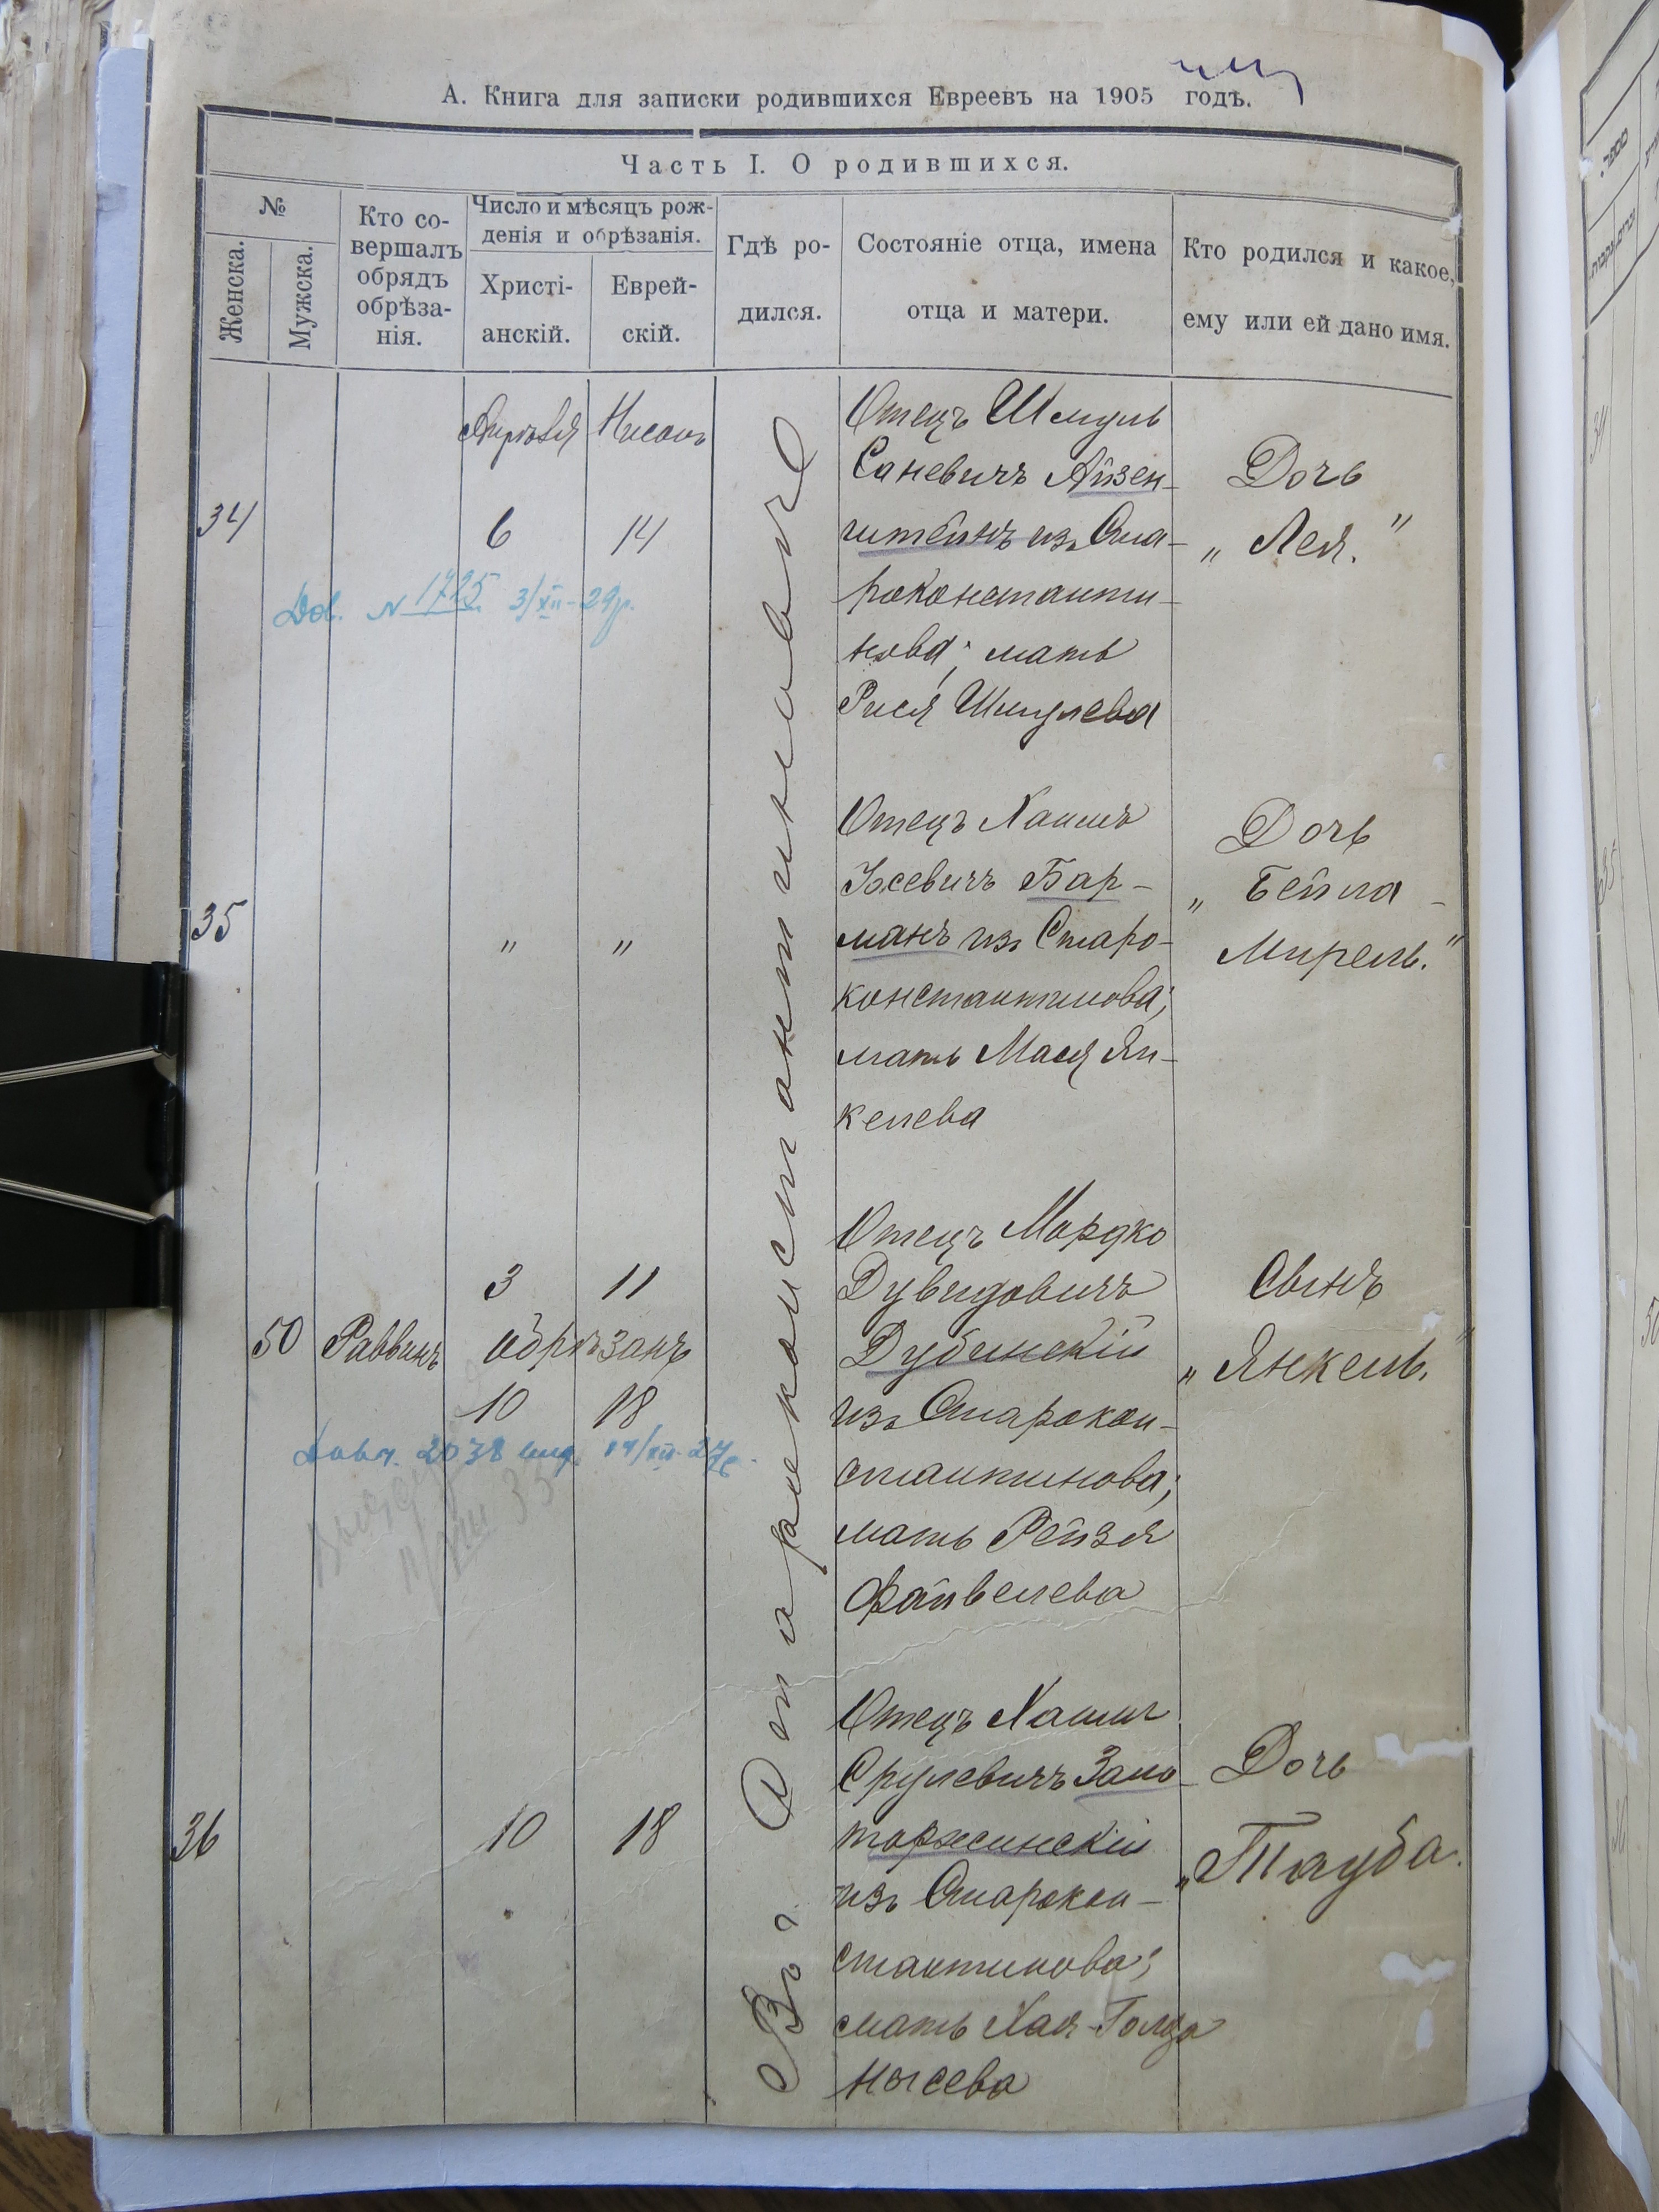 А. Книга для записки родившихся Евреевъ на 1905 годъ.
Часть I. О родившихся.
№
Женска.
Мужска.
Кто со-
вершалъ
обрядъ
обрѣза-
нія.
Число и мѣсяцъ рож-
денія и обрѣзанія.
Христі-
анскій.
Еврей-
скій.
Гдѣ ро-
дился.
Состояніе отца, имена
отца и матери.
Кто родился и какое,
ему или ей дано имя.
Въ г. Староконстантиновѣ
34
Апрѣля Нисонъ
6 14
Отецъ Шмуль
Саневичъ Айзен-
штейнъ изъ Ста-
роконстанти-
нова; мать
Рися Шмулева
Дочь
„Лея."
№ 1725 3/XII-29р.
35
" "
Отецъ Хаимъ
Іосевичъ Бар-
манъ изъ Старо-
константинова;
мать Мася Ян-
келева
Дочь
„Бейла-
Мирель."
50 Раввинъ
3 11
обрѣзанъ
10 18
Отецъ Мордко
Дувидовичъ
Дубинскій
изъ Старокон-
стантинова;
мать Рейзя
Файвелева
Сынъ
„Янкель."
2038
36
10 18
Отецъ Хаимъ
Срулевичъ Запо-
торжинскій
изъ Старокон-
стантинова;
мать Хая-Голда
Нысева
Дочь
„Тауба.